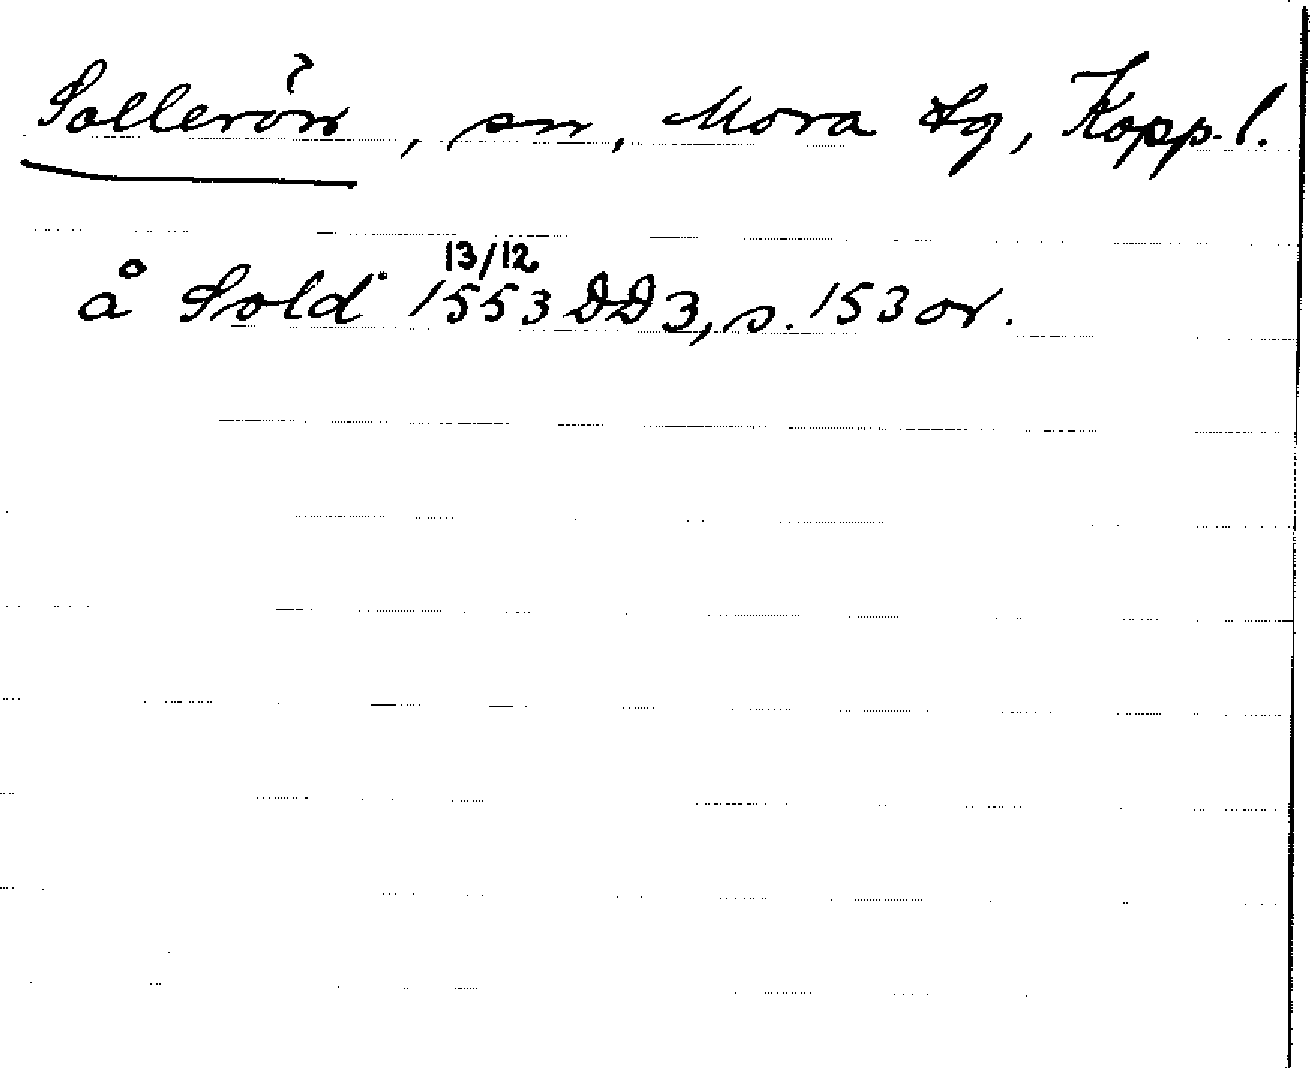 Sollerön, sn, Mora tg, Kopp. l.
13/12
å Sold 1553 DD3, s. 153 or.